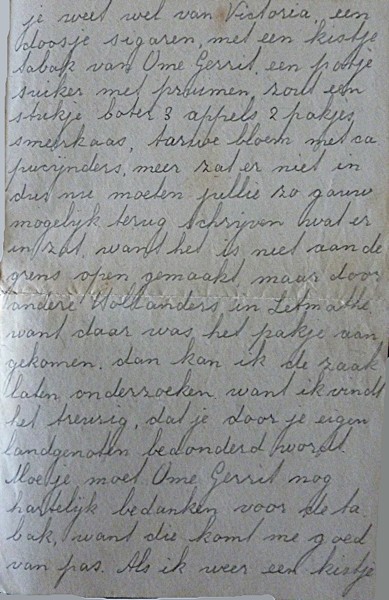 je weet wel van Victoria, een
doosje sigaren, met een kistje
tabak van Ome Gerrit, een potje
suiker met pruimen, zout een
stukje boter 3 appels, 2 pakjes
smeerkaas, tarwe bloem met ca
pucijnders, meer zat er niet in
dus nu moeten jullie zo gauw
mogelijk terug schrijven wat er
in zat, want het is niet aan de
grens open gemaakt, maar door
andere Hollanders in Letmathe,
want daar was het pakje aan
gekomen, dan kan ik de zaak
laten onderzoeken, want ik vindt
het treurig, dat je door je eigen
landgenoten bedonderd wordt.
Moetje, moet Ome Gerrit nog
hartelijk bedanken voor de ta
bak, want die komt me goed
van pas. Als ik weer een kistje